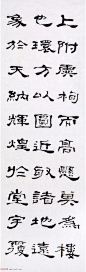 上附雲枸而高懸莫為樓
也環方以圓近取諸地遠
象於天納輝煌於堂宇履